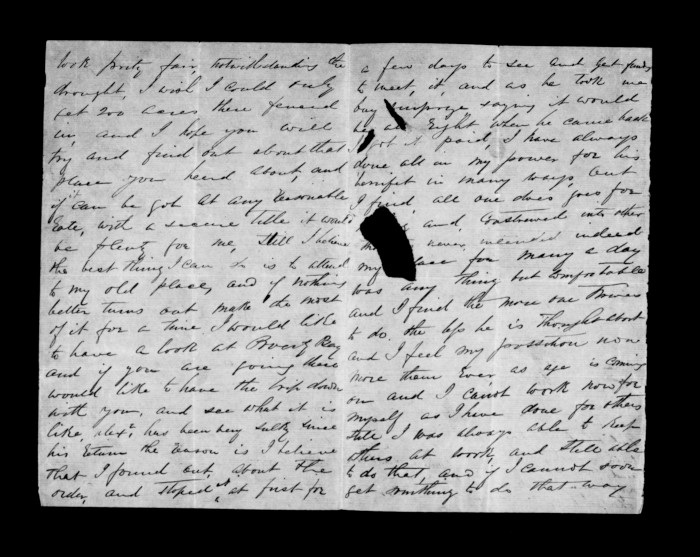 look prity fair, notwithstanding the
drought, I wish I could only
get 200 acres there fenced
in, and I hope you will
try and find out about that
place you heard about, and
if it can be got at any reasonable
rate, with a secure title it would
be plenty for me, Still I believe
the best thing I can do is to attend
to my old place, and if nothing
better turns out make the most
of it for a time, I would like
to have a look at Poverty Bay
and if you are going there
would like to have the trip down
with you, and see what it is
like, Alexr has been very sulky since
his return the reason is I believe
that I found out, about the
order, and stoped it, at first for
a few days to see and get funds
to meet, it, and as he took me
by surprize saying it would
be all right when he came back
I got it paid, I have always
done all in my power for his
benifit in many ways, but
I find, all one does goes for
and, Construed into other
never intended indeed
my for many a day
was any thing but Comfortable
and I find the more one tries
to do, the less he is thought about
and I feel my possition now
more than Ever as age is coming
on and I canot work now for
myself as I have done for others
still, I was always able to keep
others at work, and still able
to do that, and if I cannot soon
get somthing to do that way